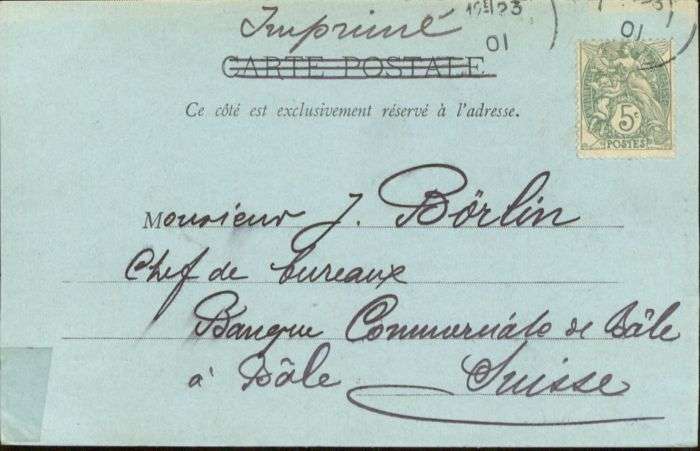 Imprimé
12 23
01
01
CARTE POSTALE
Ce côté est exclusivement réservé à l'adresse.
5c
POSTES
Monsieur J. Börlin
Chef de bureaux
Banque Commerciale de Bâle
à Bâle Suisse